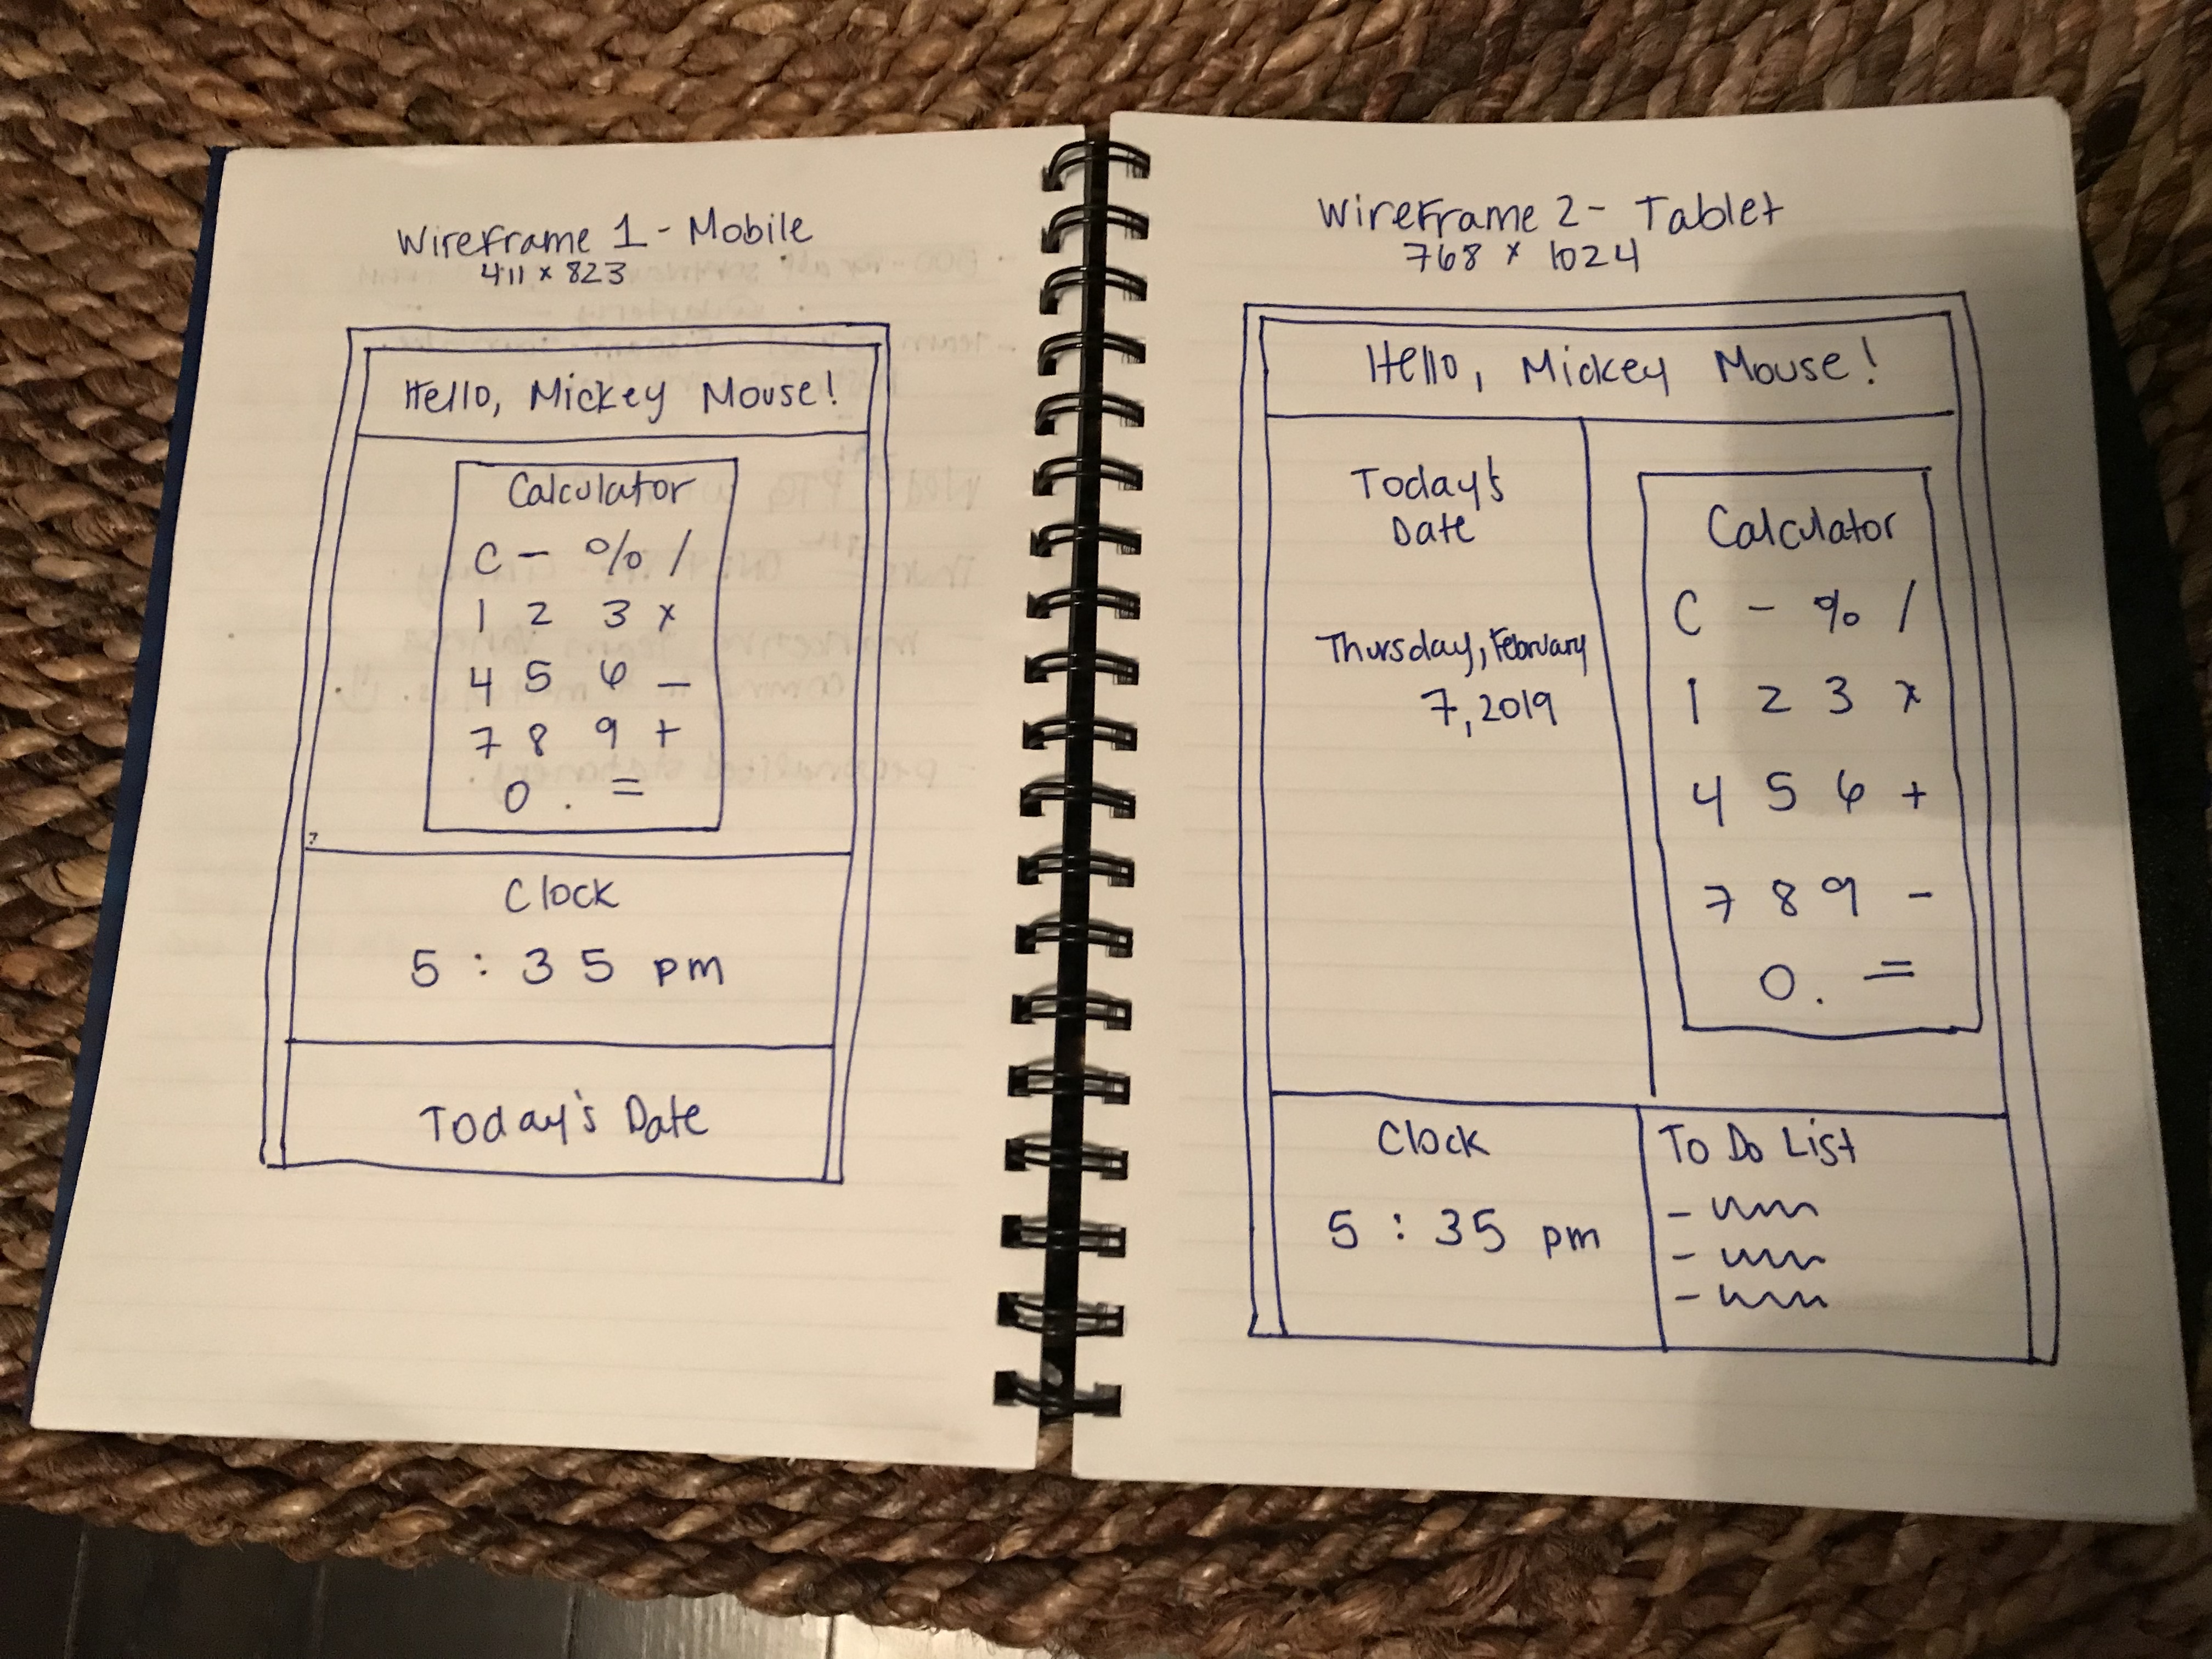 Wireframe 1 - Mobile
411 x 823
Hello, Mickey Mouse!
Calculator
C - % /
1 2 3 x
4 5 6 -
7 8 9 +
0 . =
Clock
5 : 35 pm
Today's Date
Wireframe 2 - Tablet
768 x 1024
Hello, Mickey Mouse!
Today's
Date
Thursday, February
7, 2019
Calculator
C - % /
1 2 3 x
4 5 6 +
7 8 9 -
0 . =
Clock
5 : 35 pm
To Do List